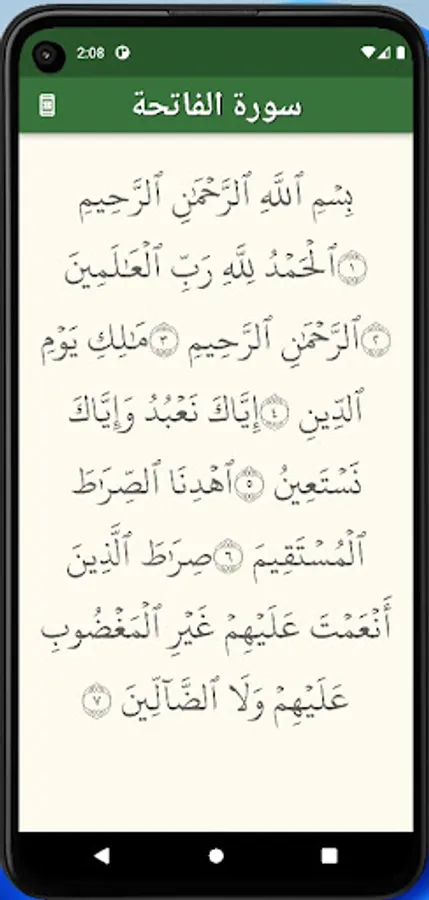 2:08
سورة الفاتحة
بِسْمِ ٱللَّهِ ٱلرَّحْمَٰنِ ٱلرَّحِيمِ
۝١ ٱلْحَمْدُ لِلَّهِ رَبِّ ٱلْعَٰلَمِينَ
۝٢ ٱلرَّحْمَٰنِ ٱلرَّحِيمِ ۝٣ مَٰلِكِ يَوْمِ
ٱلدِّينِ ۝٤ إِيَّاكَ نَعْبُدُ وَإِيَّاكَ
نَسْتَعِينُ ۝٥ ٱهْدِنَا ٱلصِّرَٰطَ
ٱلْمُسْتَقِيمَ ۝٦ صِرَٰطَ ٱلَّذِينَ
أَنْعَمْتَ عَلَيْهِمْ غَيْرِ ٱلْمَغْضُوبِ
عَلَيْهِمْ وَلَا ٱلضَّآلِّينَ ۝٧